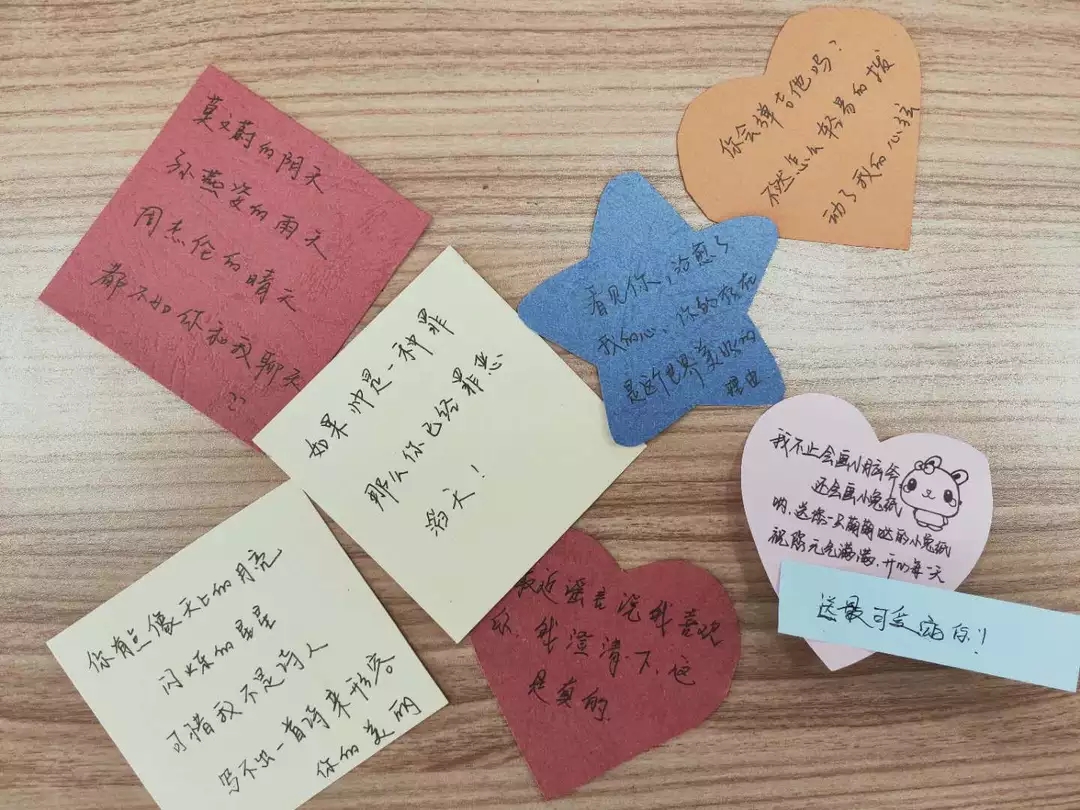 莫文蔚的阴天
孙燕姿的雨天
周杰伦的晴天
都不如你和我聊天
你会弹吉他吗?
不然怎么轻易的拨
动了我的心弦
看见你,治愈了
我的心,你的存在
是这个世界美好的
理由
如果帅是一种罪
那么你已经罪恶
滔天!
我不止会画小
还会画小兔纸
哟,送你一只萌萌哒的小兔纸
祝你元气满满,开心每一天
送最可爱的你!
最近谣言说我喜欢
你,我澄清一下,这
是真的.
你有点像天上的月亮
闪烁的星星
可惜我不是诗人
写不出一首诗来形容
你的美丽